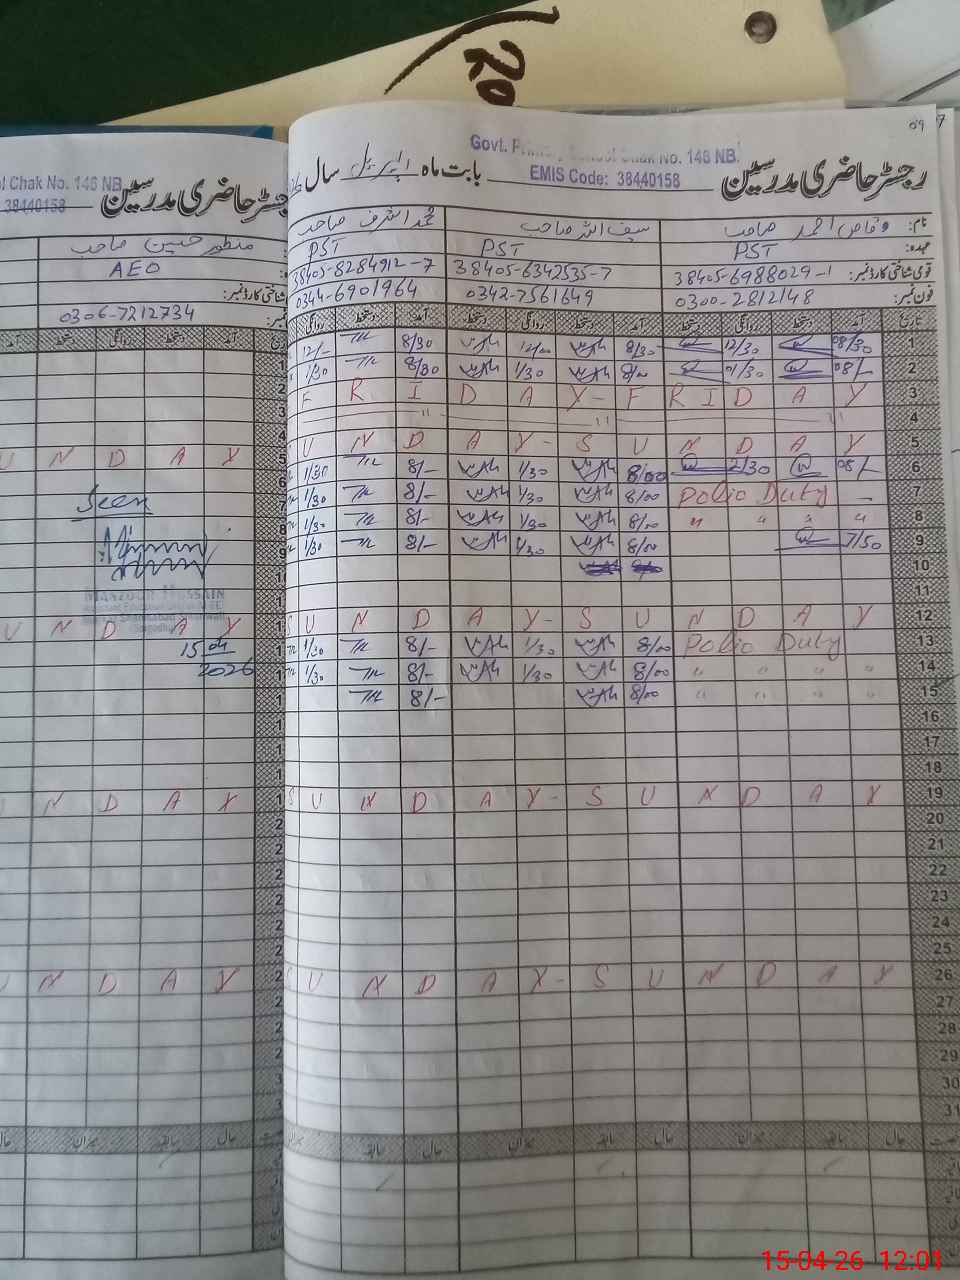 09
Govt. Primary School Chak No. 146 NB.
EMIS Code: 38440158
رجسٹر حاضری مدرسین بابت ماہ اپریل سال
نام: وقاص احمد صاحب سیف اللہ صاحب محمد اشرف صاحب
عہدہ: PST PST PST
قومی شناختی کارڈ نمبر: 38405-6988029-1 38405-6342535-7 38405-8284912-7
فون نمبر: 0300-2812148 0342-7561649 0344-6901964
تاریخ آمد دستخط روانگی دستخط آمد دستخط روانگی دستخط آمد دستخط روانگی
1 08/30 12/30 8/30 12/00 8/30 12/-
2 08/- 01/30 8/00 1/30 8/30 1/30
3 F R I D A Y - F R I D A Y
4 " " "
5 S U N D A Y - S U N D A Y
6 08/- 12/30 8/00 1/30 8/- 1/30
7 Polio Duty - 8/00 1/30 8/- 1/30
8 " " " " 8/00 1/30 8/- 1/30
9 7/50 8/00 1/30 8/- 1/30
10
11
12 S U N D A Y - S U N D A Y
13 Polio Duty 8/00 1/30 8/- 1/30
14 " " " " 8/00 1/30 8/- 1/30
15 " " " " 8/00 8/-
16
17
18
19 S U N D A Y - S U N D A Y
20
21
22
23
24
25
26 S U N D A Y - S U N D A Y
27
28
29
30
31
حال سابقہ میزان حال سابقہ میزان حال سابقہ میزان
ol Chak No. 146 NB
38440158
رجسٹر حاضری مدرسین
منظور حسین صاحب
AEO
شناختی کارڈ نمبر:
0306-7212734
آمد دستخط روانگی دستخط آمد
U N D A Y
Seen
MANZOOR HUSSAIN
U N D A Y
15 04
2026
U N D A Y
U N D A Y
حال سابقہ میزان حال
15-04-26 12:01